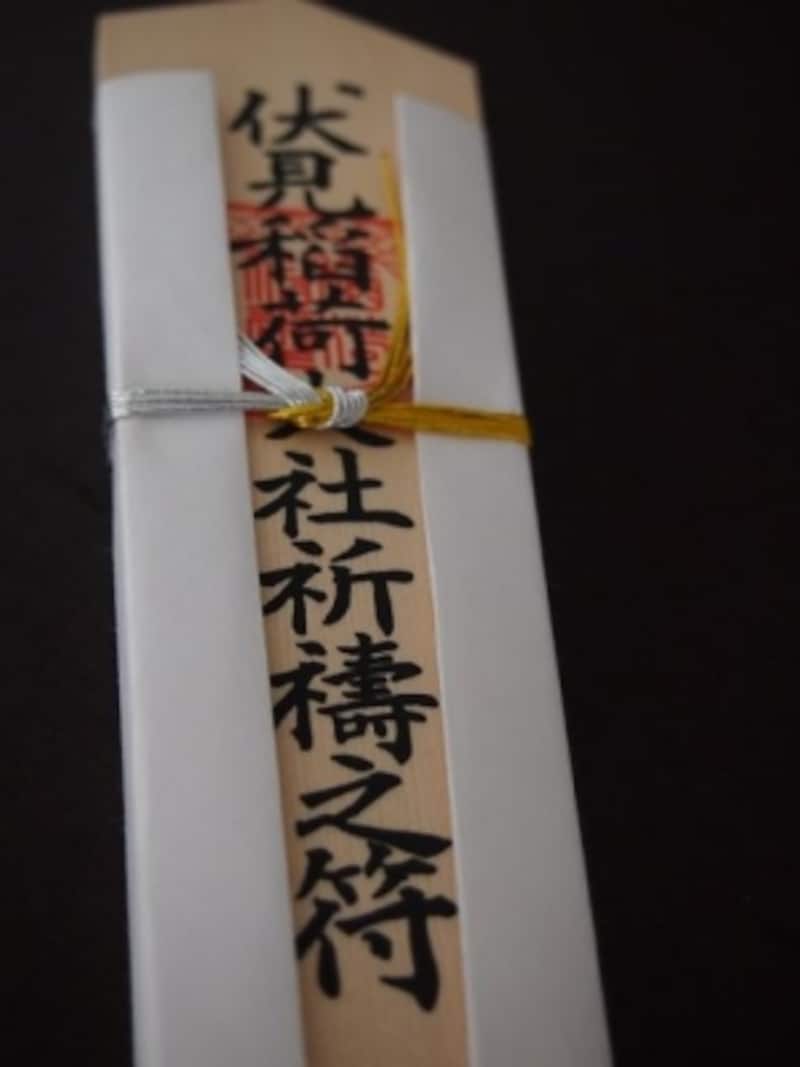 伏見稲荷大社祈禱之符